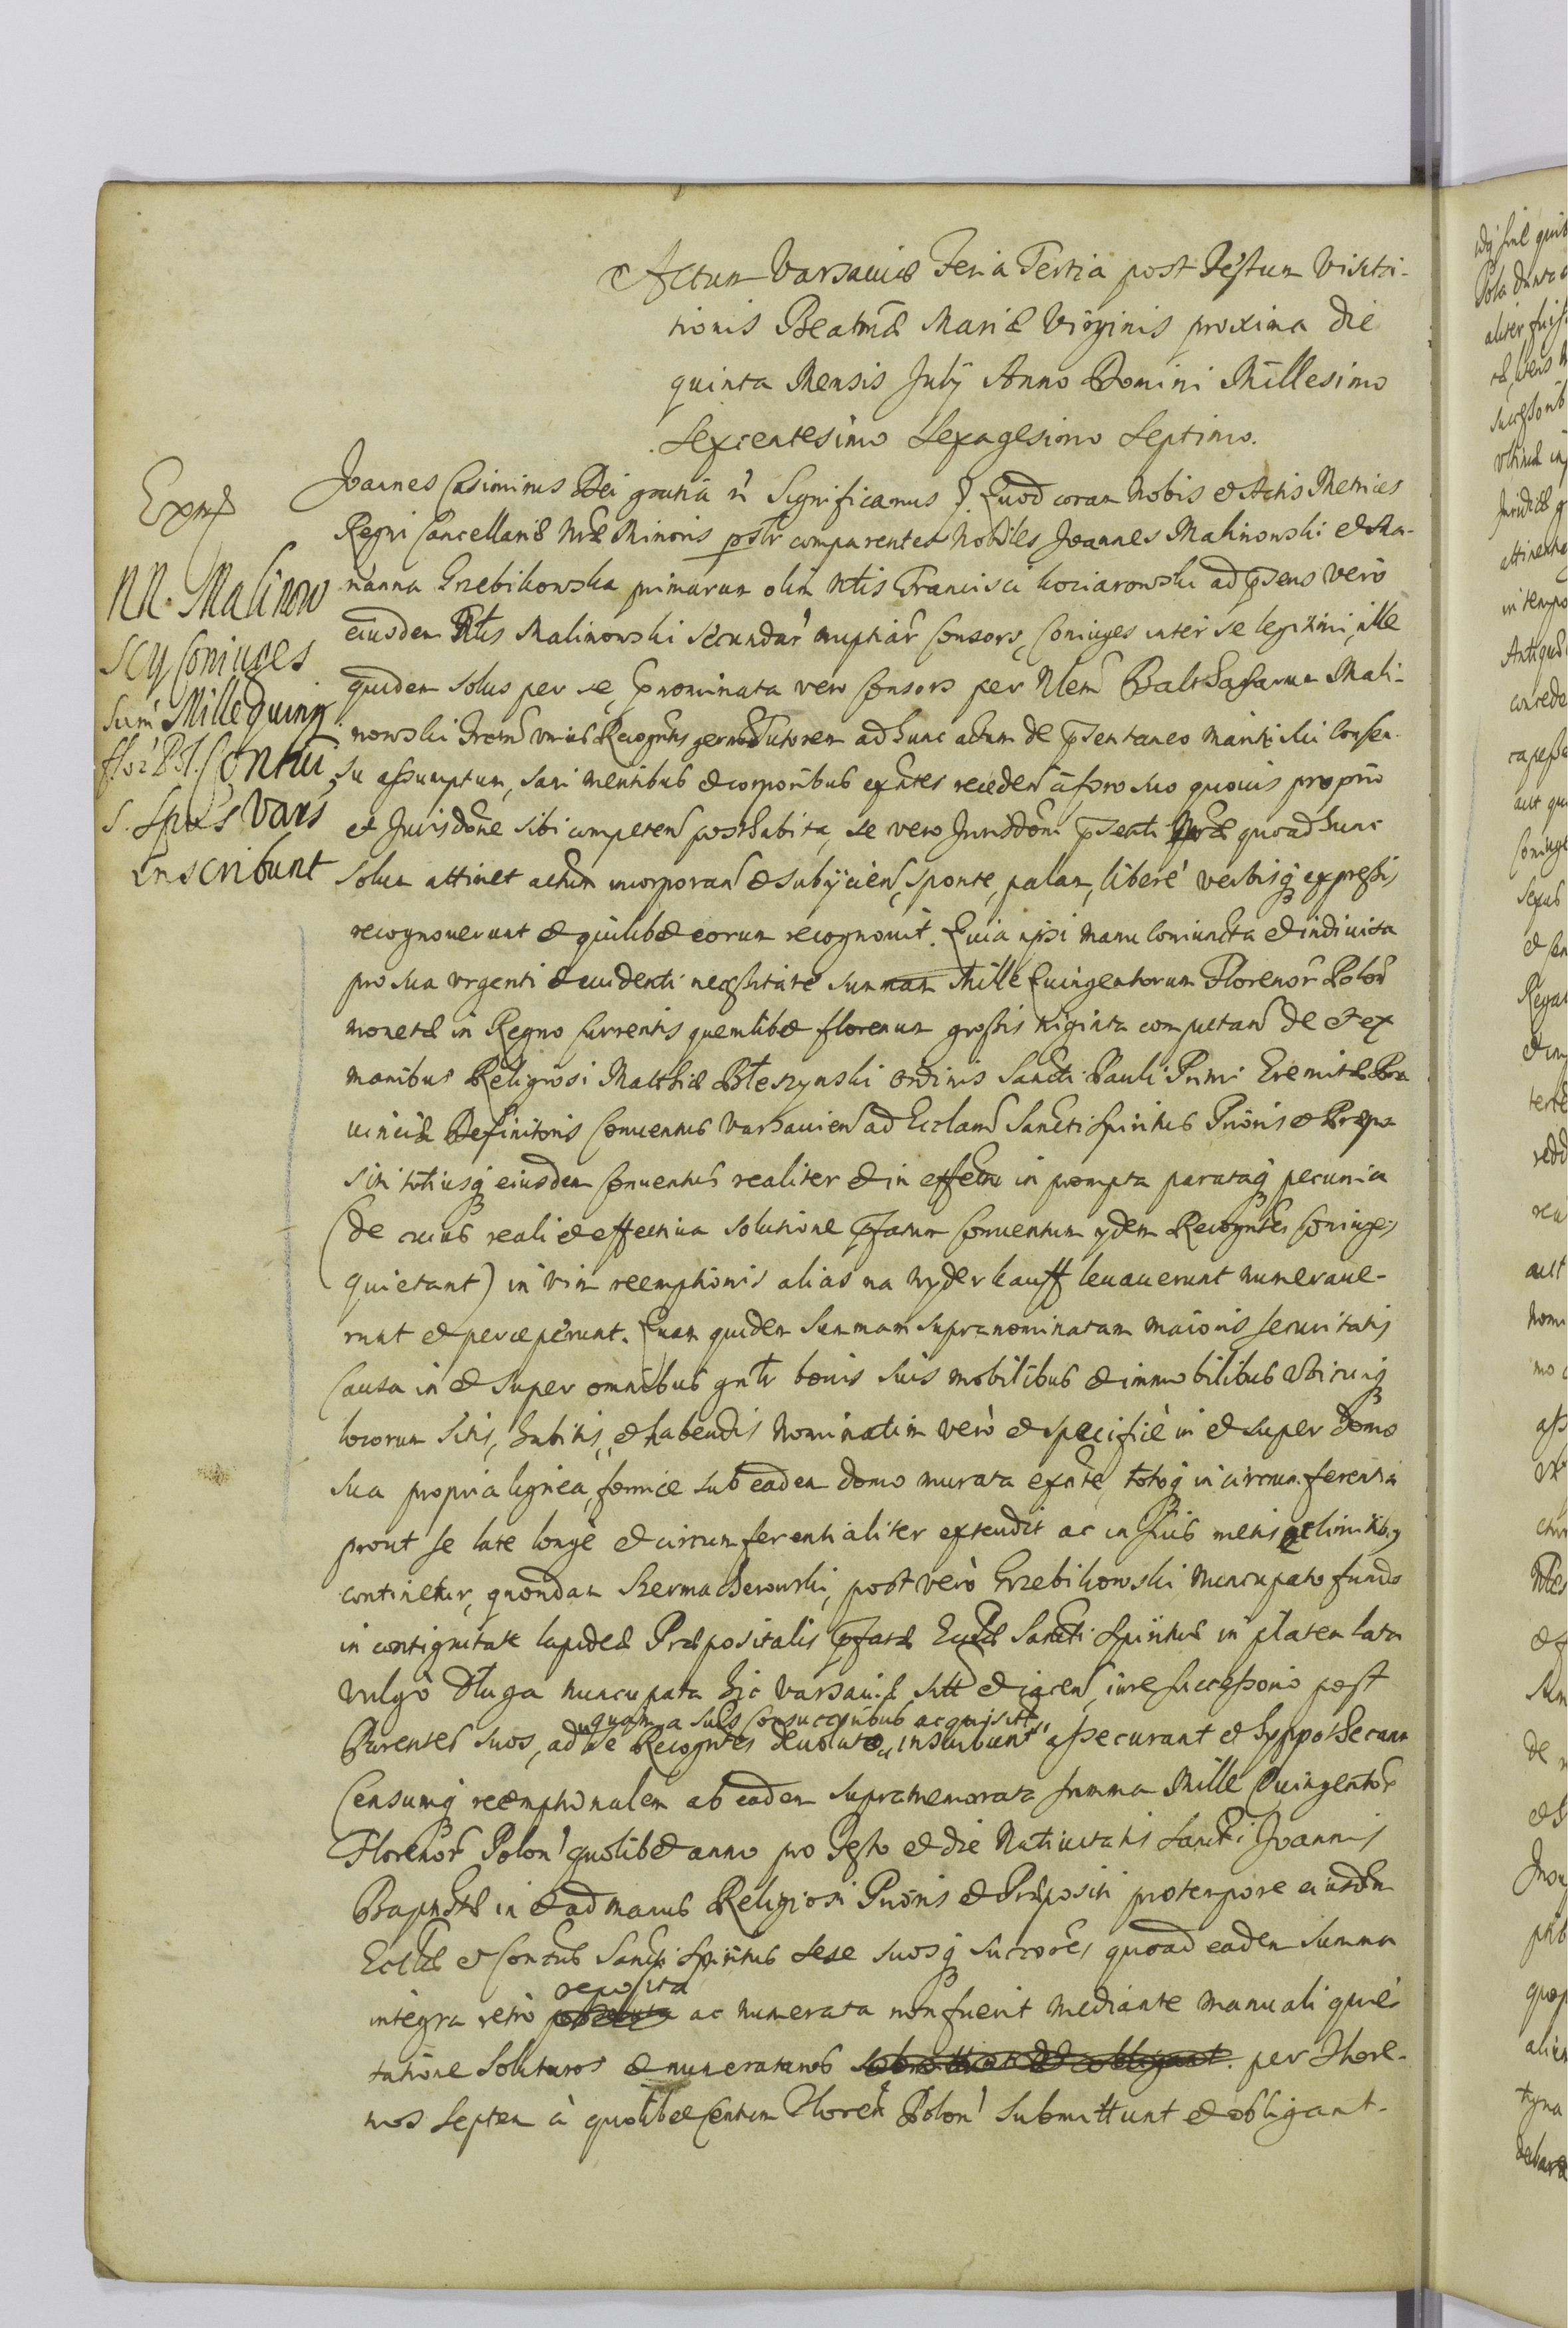 Actum Varsaviæ Feria Tertia post Festum Visita-
tionis Beatmæ Mariæ Virginis proxima die
quinta Mensis Julÿ Anno Domini Millesimo
Sexcentesimo Sexagesimo Septimo.
Exmp
NN. Malinow
scÿ Coniuges
sum Mille quing
flor P. J. Contui
S. Spũs Vars
inscribunt
Joannes Casimirus Dei gratiã Significamus Quod coram Nobis et Actis Metrices
Regni Cancellariæ Nræ Minoris psłr comparentes Nobiles Joannes Malinowski et Ma-
rianna Grzebikowska primarum olim Nłis Francisci Koziarowski ad p̃sens verò
eiusdem Nłis Malinowski secundar nuptiar Consors, Coniuges inter se legitimi, ille
quidem solus per se, p̃nominata vero Consors per Nlem Balthasarum Mali-
nowski Tutorem ad hunc actum de p̃sentaneo mariti sui consen-
su assumptum, sani mentibus et corporibus exñtes receden à foro suo quovis proprio
et Jurisdõne sibi competen posthabita, se vero Jurisdõni p̃senti quoad hunc
solum attinet actum incorporan et subÿcien, sponte, palam, liberè verbisq expressis
recognoverunt et quilibet eorum recognovit. Quia ipsi manu coniuncta et indivisa
pro sua urgenti et evidenti necessitate summam Mille Quingentorum Florenor Polon
monetæ in Regno currentis quemlibet florenum grossis triginta computan de et ex
manibus Religiosi Matthiæ Błeszynski Ordinis Sancti Pauli Primi Eremitæ Pro
vinciæ Definitoris Conventus Varsavien ad Ecclam Sancti Spiritus Prioris et Præpo
siti totiusq eiusdem Conventus realiter et in effectu in prompta parataq pecunia
(de cuius reali et effectiva solutione p̃fatum Conventum ÿdem Recogntes Coniuges
quietant) in vim reemptionis alias na wyderkauff levaverunt numerave-
runt et perceperunt. Quam quidem Summam supranominatam maioris securitatis
Causa in et super omnibus gñłr bonis suis mobilibus et immobilibus ubicunq
locorum sitis, habitis, et habendis Nominatim verò et specificè in et super domo
sua propria lignea, fornice sub eadem domo murata exñte, totoq in circumferentia
prout se late longè et circumferentialiter extendit ac in suis metis et limitibq
continetur, quondam Szermacherowski, post verò Grzebikowski nuncupato fundo
in contignitate lapideæ Præpositalis p̃fatæ Ecclæ Sancti Spiritus in platea lata
vulgò Długa nuncupata hic Varsaviæ sitt et iacen, iure successorio post
quam a suis Consuccoribus acquisitt
Parentes suos, ad se Recogntes devoluto, inscribunt assecurant et hyppothecant
Censumq reemptionalem ab eadem supramemorata summa Mille Quingentor
Florenor Polon quolibet anno pro Festo et die Nativitatis Sancti Joannis
Baptistæ in et ad manus Religiosi Prioris et Præpositi pro tempore eiusdem
Ecclæ et Contus Sancti Spiritus sese suosq succores, quoad eadem summa
reposita
integra retrò ac numerata non fuerit mediante manuali quie-
tatione soluturos et numeraturos submittunt et obligant. per Flore-
nos septem à quolibet Centum Floren Polon submittunt et obligant.